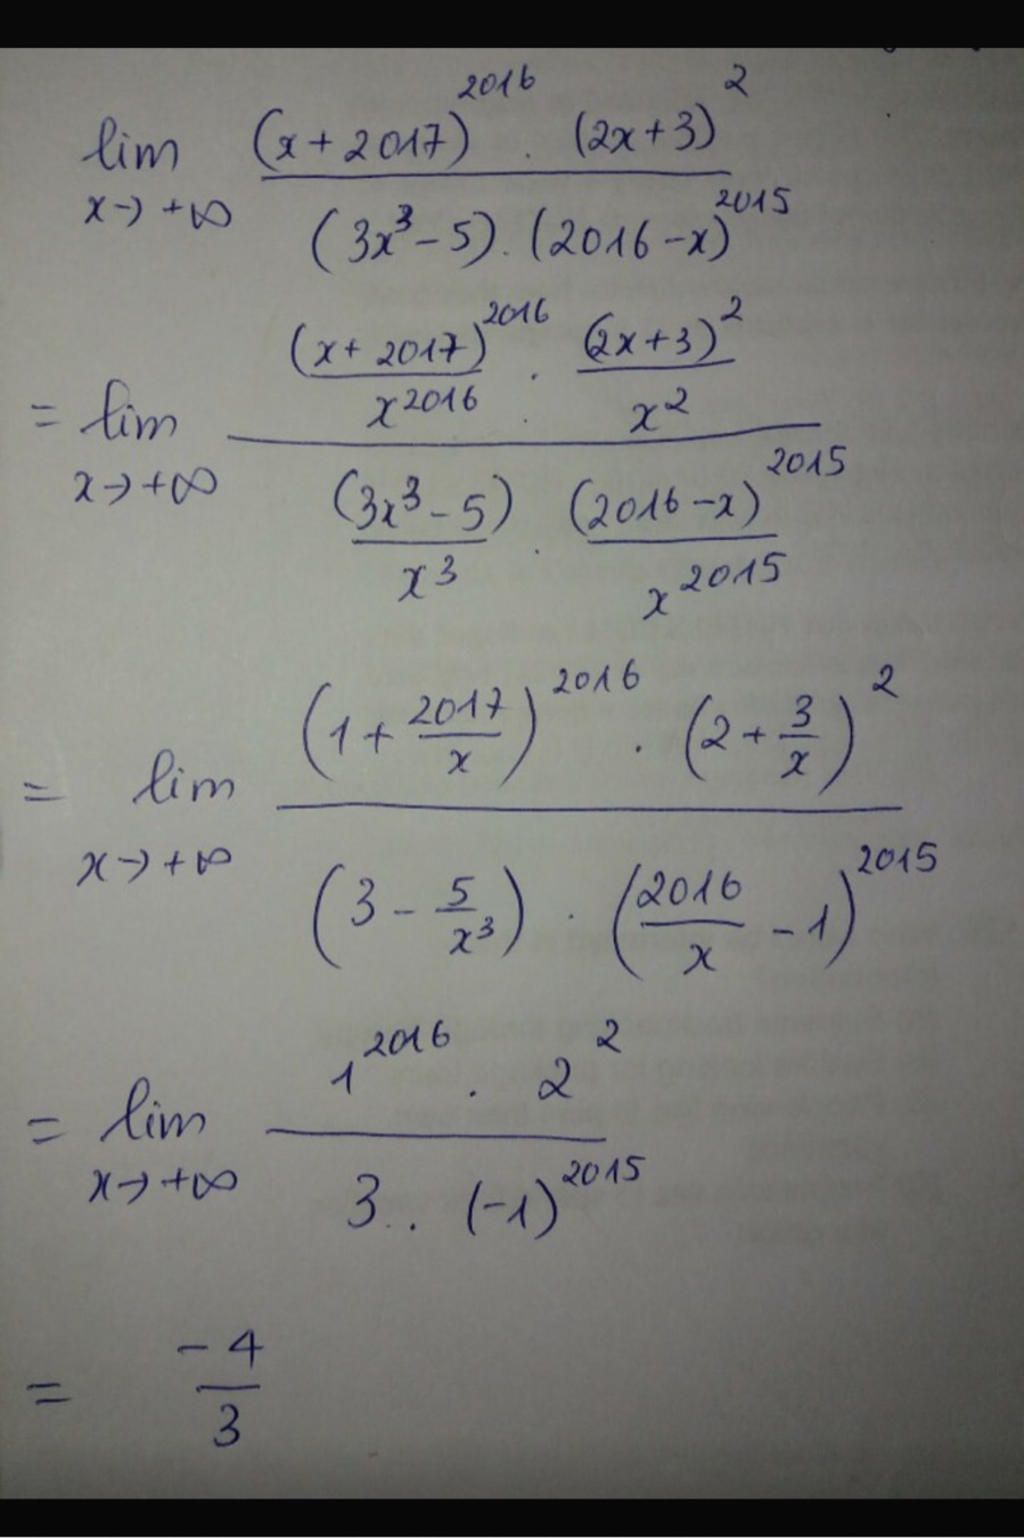 lim x→+∞ (x+2017)^2016 . (2x+3)^2 / (3x^3-5).(2016-x)^2015
= lim x→+∞ (x+2017)^2016/x^2016 . (2x+3)^2/x^2 / (3x^3-5)/x^3 . (2016-x)^2015/x^2015
= lim x→+∞ (1+2017/x)^2016 . (2+3/x)^2 / (3-5/x^3) . (2016/x-1)^2015
= lim x→+∞ 1^2016 . 2^2 / 3 . (-1)^2015
= -4/3